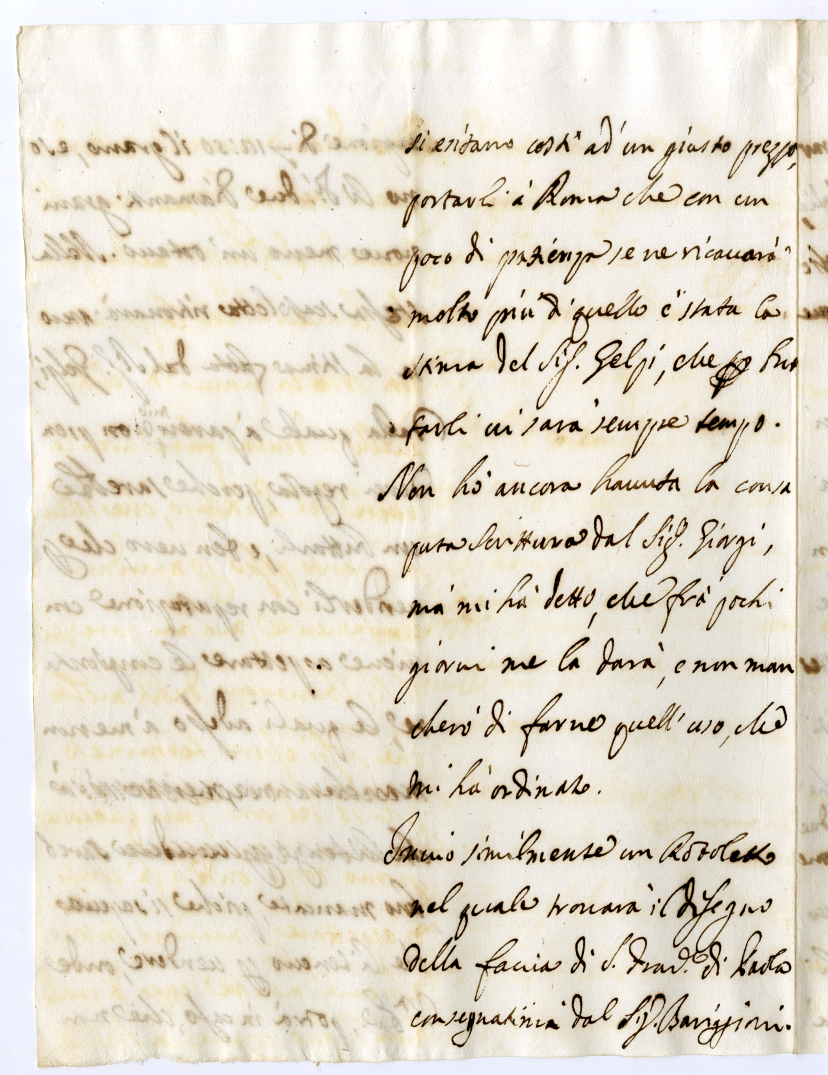 si esitano costì ad' un giusto prezzo,
portarli à Roma che con un
poco di pazienza se ne ricavarà
molto più di quello è stata la
stima del Sig.r Gelpi, che
farli vi sarà sempre tempo.
Non hò ancora havuta la consa
puta Scrittura dal Sig.r Giorgi,
mà mi hà detto, che frà pochi
giorni me la darà, e non man
cherò di farne quell' uso, che
mi hà ordinato.
Invio similmente un Rotoletto
nel quale trovarà il disegno
della faccia di S. Fran.co di Paola
consegnatimi dal Sig.r Barigioni.